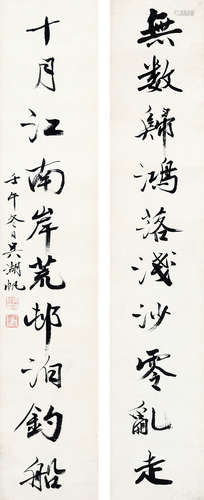 無數歸鴻落淺沙零亂走
十月江南岸荒邨泊釣船
壬午冬日吳湖帆